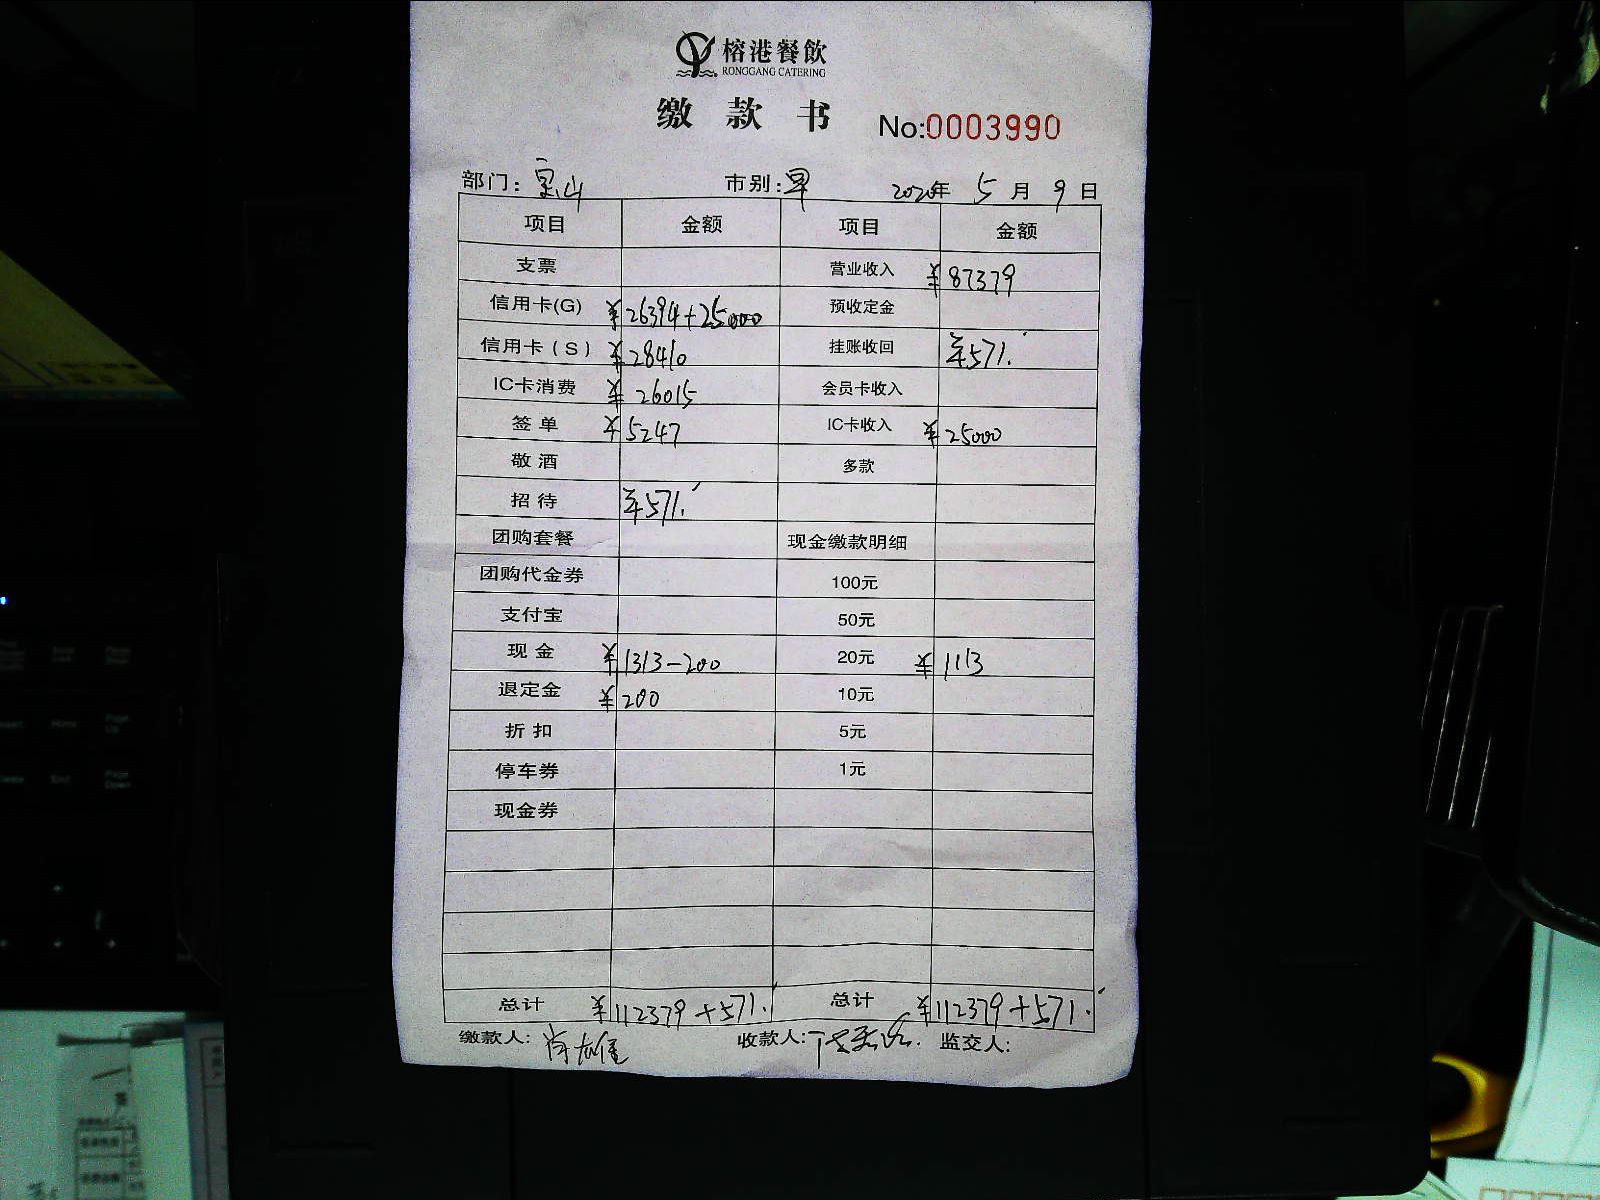 榕港餐飲
RONGGANG CATERING
缴 款 书
No:0003990
部门: 宝山 市别: 早 2020年 5 月 9 日
项目 金额 项目 金额
支票 营业收入 ¥87379
信用卡(G) ¥26394+25000 预收定金
信用卡(S) ¥28410 挂账收回 ¥571.
IC卡消费 ¥26015 会员卡收入
签单 ¥5247 IC卡收入 ¥25000
敬酒 多款
招待 ¥571.
团购套餐 现金缴款明细
团购代金券 100元
支付宝 50元
现金 ¥1313-200 20元 ¥1113
退定金 ¥200 10元
折扣 5元
停车券 1元
现金券
总计 ¥112379+571. 总计 ¥112379+571.
缴款人: 收款人: 监交人: